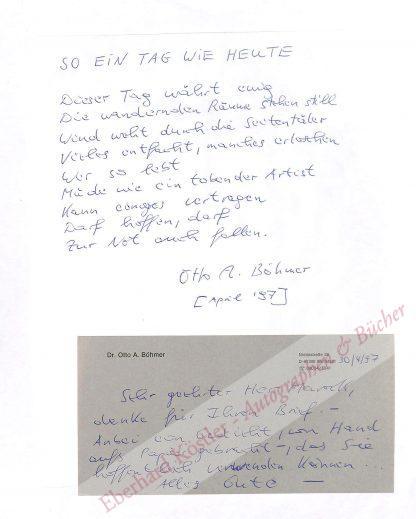 SO EIN TAG WIE HEUTE
Dieser Tag währt ewig
Die wandernden Räume stehen still
Wind weht durch die Seitentäler
Vieles entfacht, manches erloschen
Wer so lebt
Müde wie ein tobender Artist
Kann einiges vertragen
Darf hoffen, darf
Zur Not auch fallen.
Otto A. Böhmer
[April '97]
Dr. Otto A. Böhmer
30/4/97
Sehr geehrter Herr
danke für Ihren Brief. –
Anbei ein Gedicht, von Hand
aufs Papier gebracht –, das Sie
hoffentlich verwenden können ...
Alles Gute –
Eberhard Köstler - Autographen & Bücher